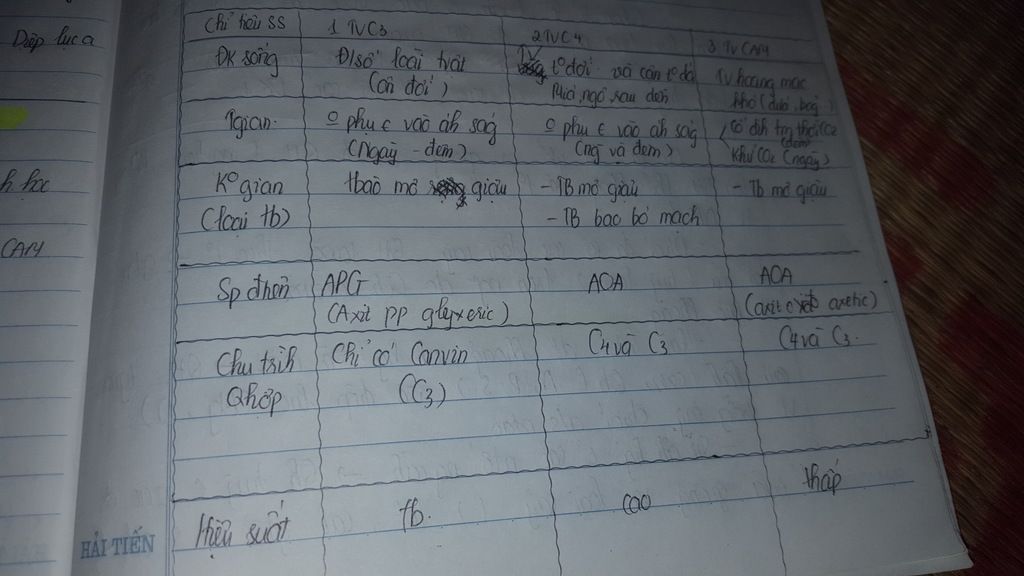 Diệp lục a
h học
CAM
Chỉ tiêu SS 1 TVC3 2 TVC4 3 TV CAM
ĐK sống Đ/số loài t vật TV tº đới và cận tº đới TV hoang mạc
(ôn đới) Mía, ngô, rau dền khô (dứa, )
Tgian º phụ c vào áh ság º phụ c vào áh ság Cố địh CO2 (đêm)
(Ngày - đêm) (ng và đêm) khử CO2 (ngày)
Kº gian tbào mô giậu - TB mô giậu - Tb mô giậu
(loại tb) - TB bao bó mạch
Sp đ APG AOA AOA
(Axit pp glyxeric) (axit axetic)
Chu trìh Chỉ có Canvin C4 và C3 C4 và C3.
Qhợp (C3)
Hiệu suất tb. cao thấp
HẢI TIẾN